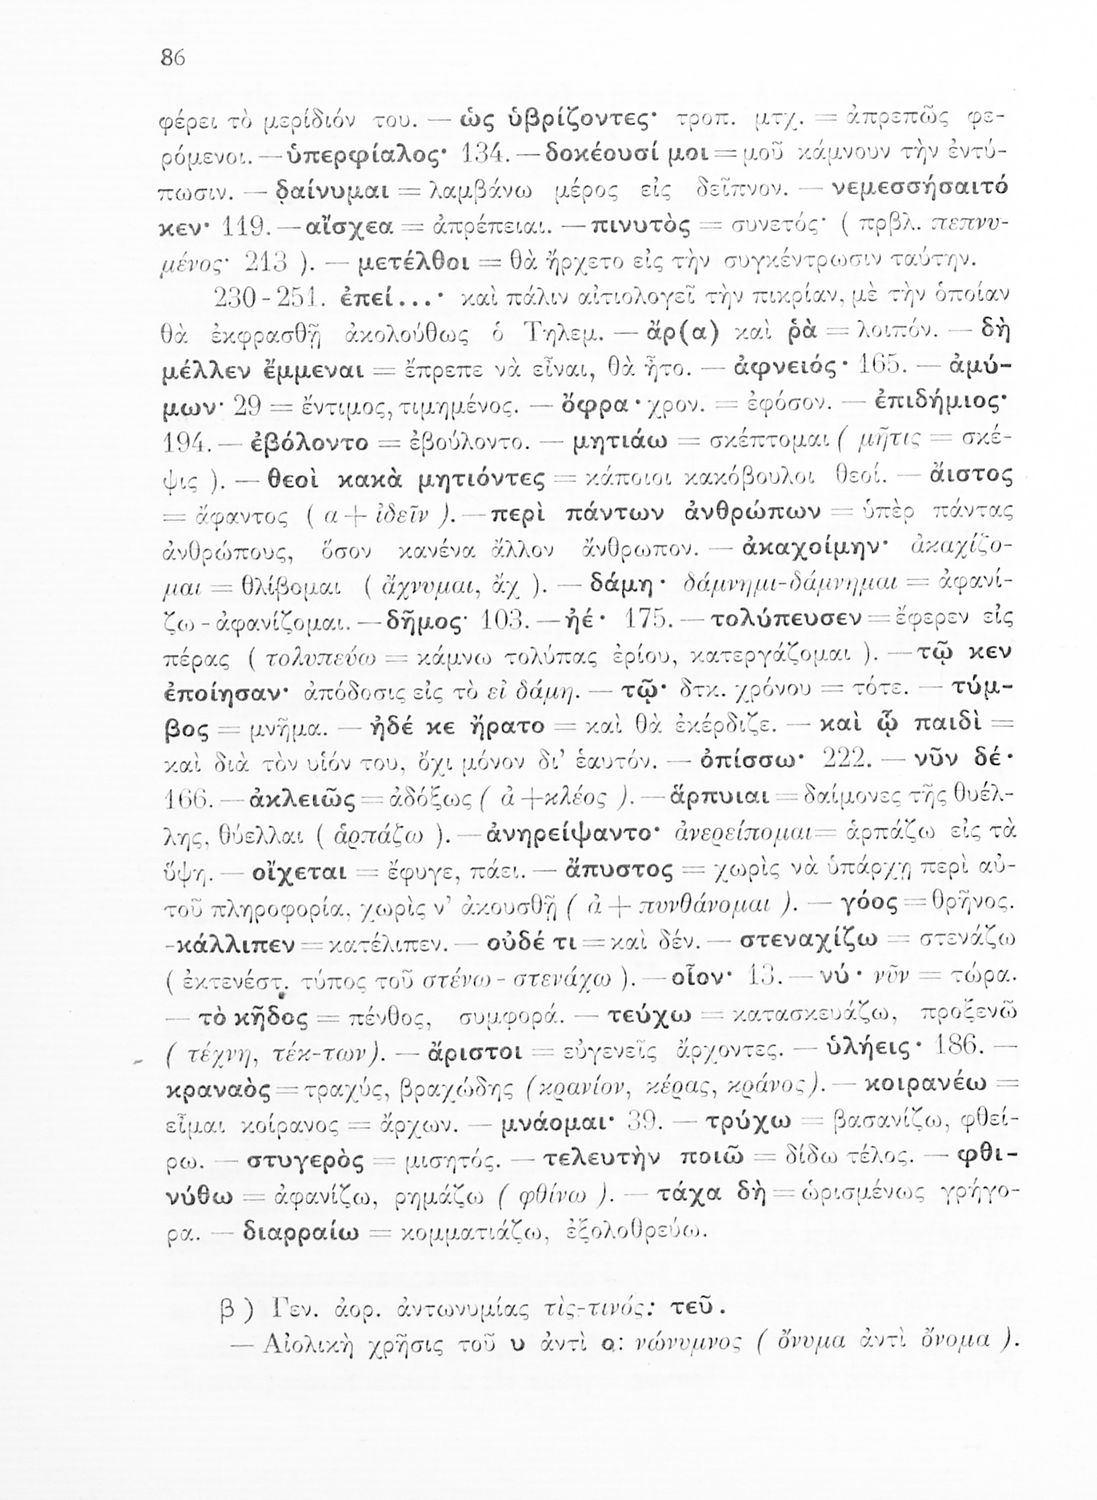 86
φέρει τὸ μερίδιόν του. — ὡς ὑβρίζοντες· τροπ. μτχ. = ἀπρεπῶς φε-
ρόμενοι. — ὑπερφίαλος· 134. — δοκέουσί μοι = μοῦ κάμνουν τὴν ἐντύ-
πωσιν. — δαίνυμαι = λαμβάνω μέρος εἰς δεῖπνον. — νεμεσσήσαιτό
κεν· 119. — αἴσχεα = ἀπρέπειαι. — πινυτὸς = συνετός· ( πρβλ. πεπνυ-
μένος· 213 ). — μετέλθοι = θὰ ἤρχετο εἰς τὴν συγκέντρωσιν ταύτην.
230 - 251. ἐπεί...· καὶ πάλιν αἰτιολογεῖ τὴν πικρίαν, μὲ τὴν ὁποίαν
θὰ ἐκφρασθῇ ἀκολούθως ὁ Τηλεμ. — ἄρ(α) καὶ ῥὰ = λοιπόν. — δὴ
μέλλεν ἔμμεναι = ἔπρεπε νὰ εἶναι, θὰ ἦτο. — ἀφνειός· 165. — ἀμύ-
μων· 29 = ἔντιμος, τιμημένος. — ὄφρα· χρον. = ἐφόσον. — ἐπιδήμιος·
194. — ἐβόλοντο = ἐβούλοντο. — μητιάω = σκέπτομαι ( μῆτις = σκέ-
ψις ). — θεοὶ κακὰ μητιόντες = κάποιοι κακόβουλοι θεοί. — ἄιστος
= ἄφαντος ( α + ἰδεῖν ). — περὶ πάντων ἀνθρώπων = ὑπὲρ πάντας
ἀνθρώπους, ὅσον κανένα ἄλλον ἄνθρωπον. — ἀκαχοίμην· ἀκαχίζο-
μαι = θλίβομαι ( ἄχνυμαι, ἄχ ). — δάμη· δάμνημι-δάμνημαι = ἀφανί-
ζω - ἀφανίζομαι. — δῆμος· 103. — ἠέ· 175. — τολύπευσεν = ἔφερεν εἰς
πέρας ( τολυπεύω = κάμνω τολύπας ἐρίου, κατεργάζομαι ). — τῷ κεν
ἐποίησαν· ἀπόδοσις εἰς τὸ εἰ δάμη. — τῷ· δτκ. χρόνου = τότε. — τύμ-
βος = μνῆμα. — ἠδέ κε ἤρατο = καὶ θὰ ἐκέρδιζε. — καὶ ᾧ παιδὶ =
καὶ διὰ τὸν υἱόν του, ὄχι μόνον δι' ἑαυτόν. — ὀπίσσω· 222. — νῦν δέ·
166. — ἀκλειῶς = ἀδόξως ( ἀ + κλέος ). — ἅρπυιαι = δαίμονες τῆς θυέλ-
λης, θύελλαι ( ἁρπάζω ). — ἀνηρείψαντο· ἀνερείπομαι = ἁρπάζω εἰς τὰ
ὕψη. — οἴχεται = ἔφυγε, πάει. — ἄπυστος = χωρὶς νὰ ὑπάρχῃ περὶ αὐ-
τοῦ πληροφορία, χωρὶς ν' ἀκουσθῇ ( ἀ + πυνθάνομαι ). — γόος = θρῆνος.
-κάλλιπεν = κατέλιπεν. — οὐδέ τι = καὶ δέν. — στεναχίζω = στενάζω
( ἐκτενέστ. τύπος τοῦ στένω - στενάχω ). — οἷον· 13. — νύ· νῦν = τώρα.
— τὸ κῆδος = πένθος, συμφορά. — τεύχω = κατασκευάζω, προξενῶ
( τέχνη, τέκ-των). — ἄριστοι = εὐγενεῖς ἄρχοντες. — ὑλήεις· 186. —
κραναὸς = τραχύς, βραχώδης (κρανίον, κέρας, κράνος). — κοιρανέω =
εἶμαι κοίρανος = ἄρχων. — μνάομαι· 39. — τρύχω = βασανίζω, φθεί-
ρω. — στυγερὸς = μισητός. — τελευτὴν ποιῶ = δίδω τέλος. — φθι-
νύθω = ἀφανίζω, ρημάζω ( φθίνω ). — τάχα δὴ = ὡρισμένως γρήγο-
ρα. — διαρραίω = κομματιάζω, ἐξολοθρεύω.
β ) Γεν. ἀορ. ἀντωνυμίας τὶς-τινός: τεῦ.
— Αἰολικὴ χρῆσις τοῦ υ ἀντὶ ο: νώνυμνος ( ὄνυμα ἀντὶ ὄνομα ).